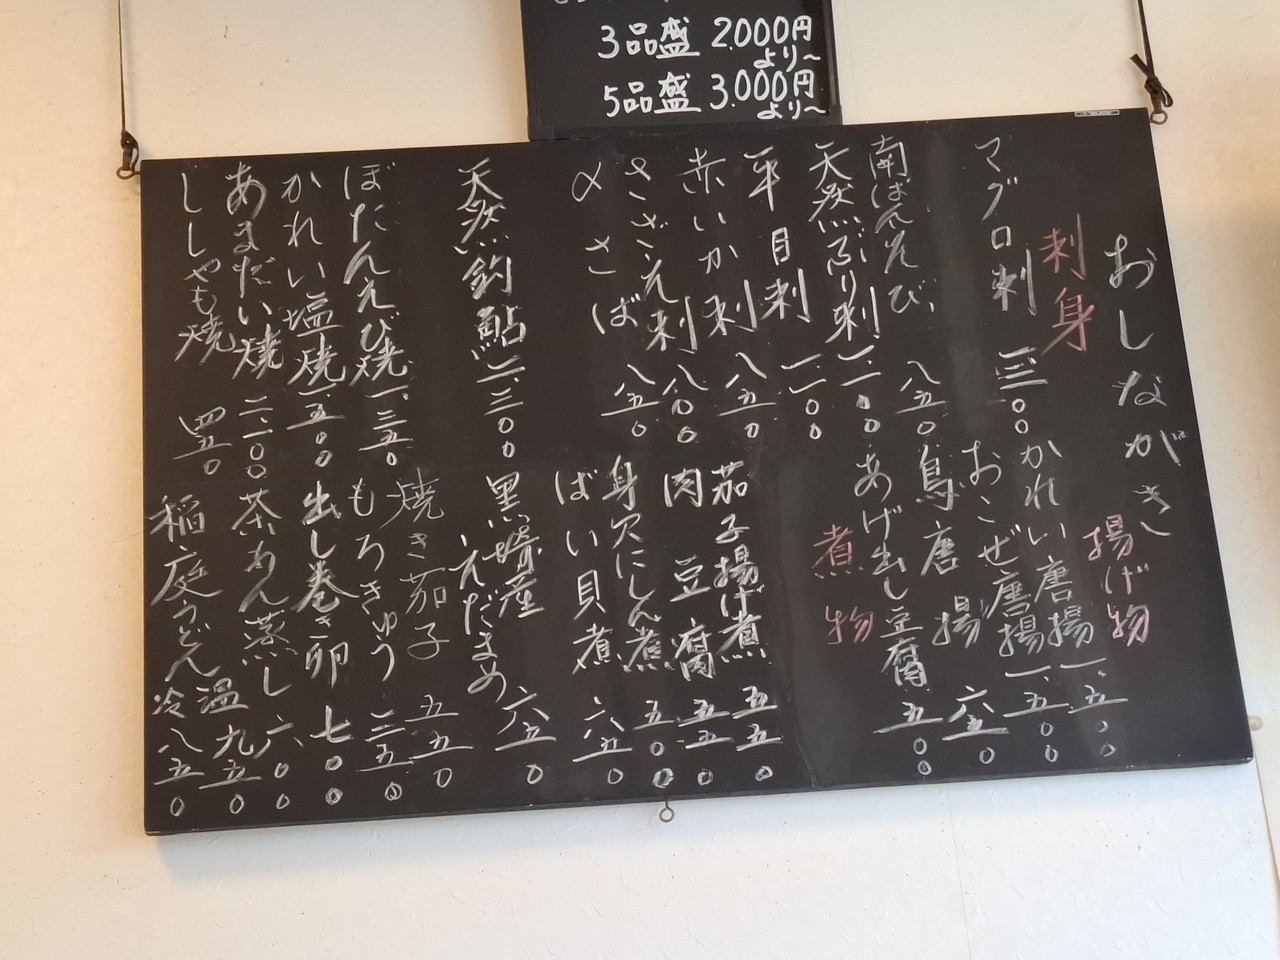 3品盛 2.000円
より〜
5品盛 3.000円
より〜
おしながき
刺身
マグロ刺 一、三〇〇
南ばんえび 八五〇
天然ぶり刺 一、一〇〇
平目刺 一、一〇〇
赤いか刺 八五〇
さざえ刺 八〇〇
〆さば 八五〇
天然鈎鮎 一、三〇〇
ぼたんえび焼 一、三五〇
かれい塩焼 一、五〇〇
あまだい焼 二、二〇〇
ししゃも焼 四五〇
揚げ物
かれい唐揚 一、五〇〇
おこぜ唐揚 一、五〇〇
鳥唐揚 六五〇
あげ出し豆腐 五〇〇
煮物
茄子揚げ煮 五五〇
肉豆腐 五五〇
身欠にしん煮 五〇〇
ばい貝煮 六五〇
黒埼産
えだまめ 六五〇
焼き茄子 五五〇
もろきゅう 三五〇
出し巻き卵 七〇〇
茶あん蒸し 六〇〇
稲庭うどん 温 九五〇
冷 八五〇